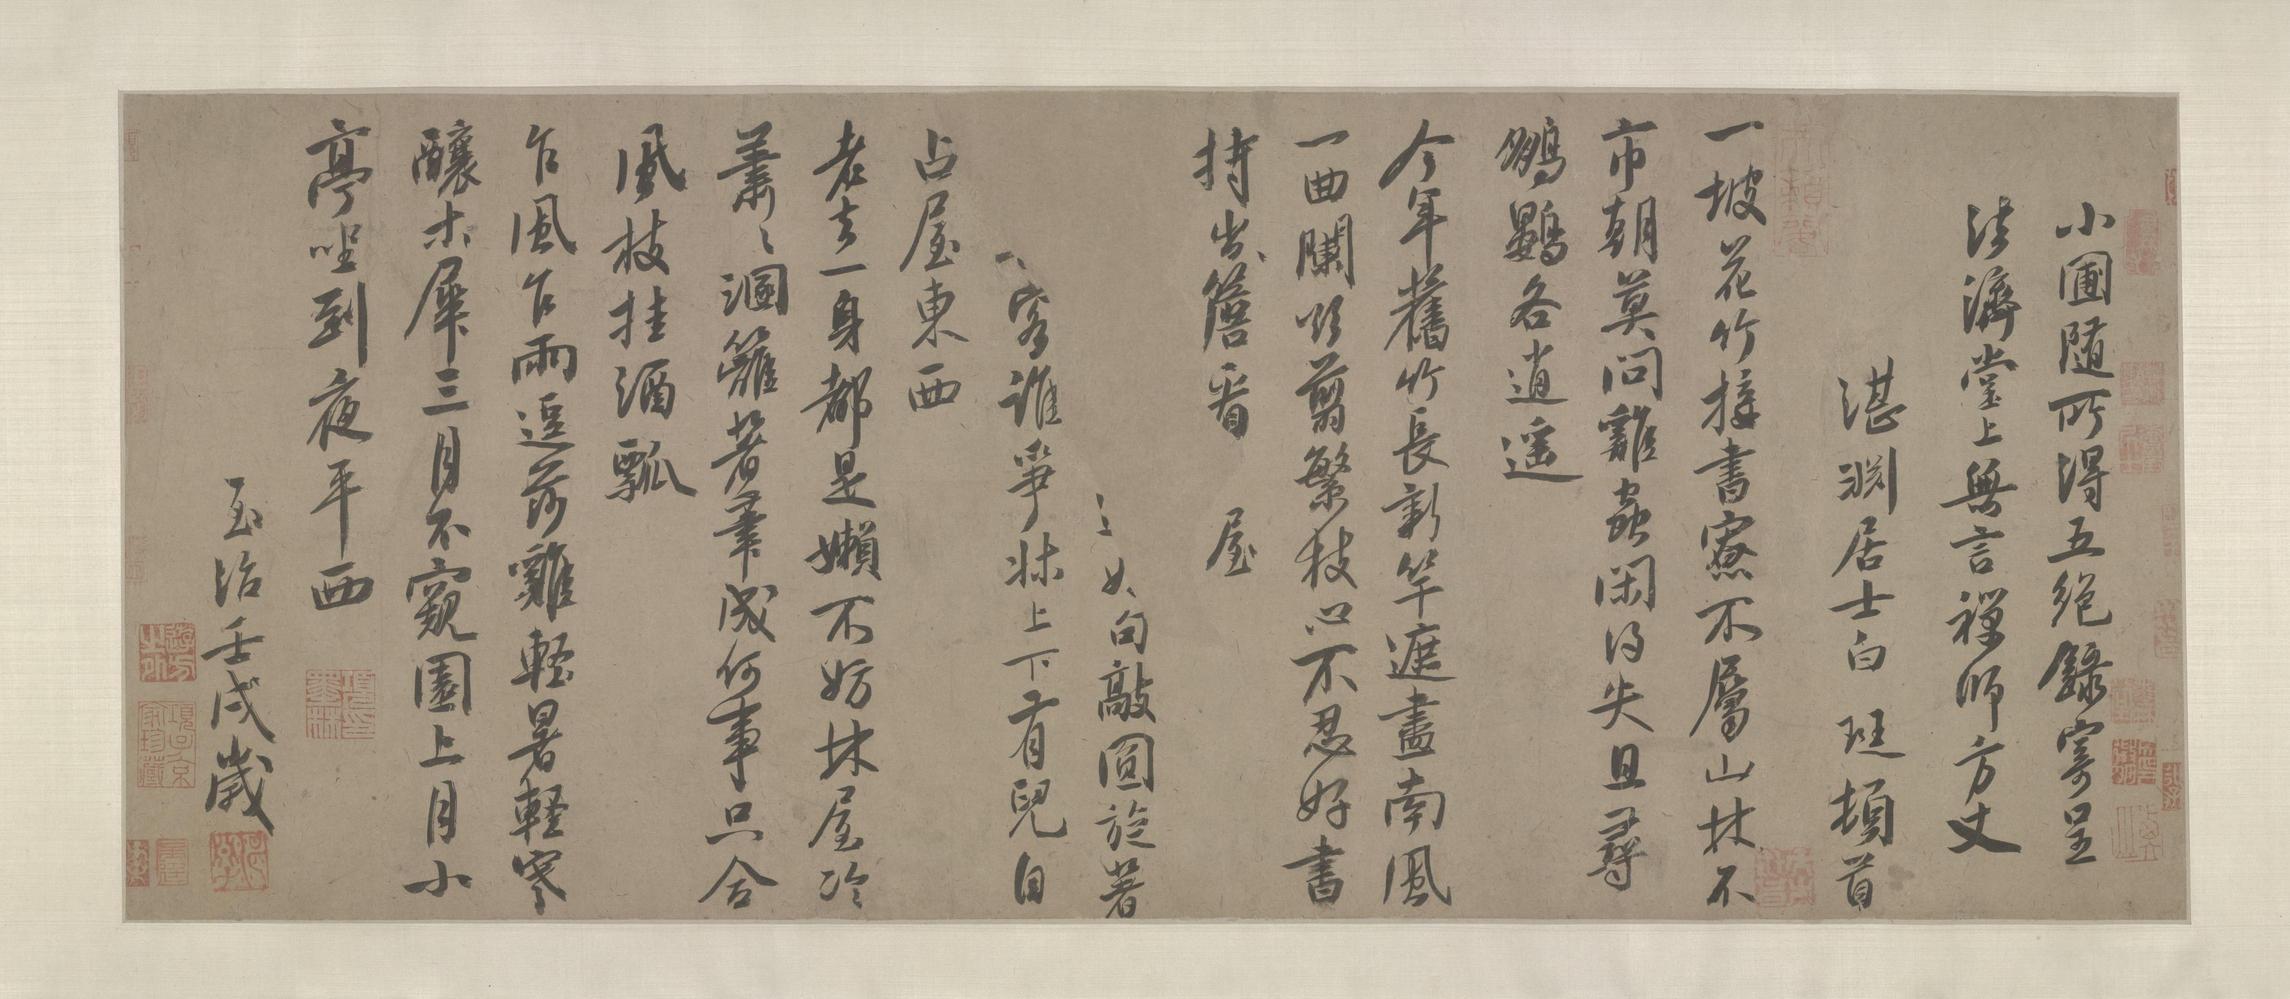 小圃随所得五絶錄寄呈
法濟堂上無言禪師方丈
湛淵居士白珽頓首
一坡花竹接書寮不屬山林不
市朝莫問雞蟲閑得失且尋
鵬鷃各逍遥
今年舊竹長新竿遮盡南風
一曲闌欲剪繁枝心不忍好書
持出簷看
屋
句敲圓旋著
客誰爭牀上下有兒自
占屋東西
老去一身都是嬾不妨林屋冷
蕭〻溷籬著薺成何事只合
風枝挂酒瓢
乍風乍雨逗荷雞輕暑輕寒
釀木犀三月不窺園上月小
亭坐到夜平西
至治壬戌歲